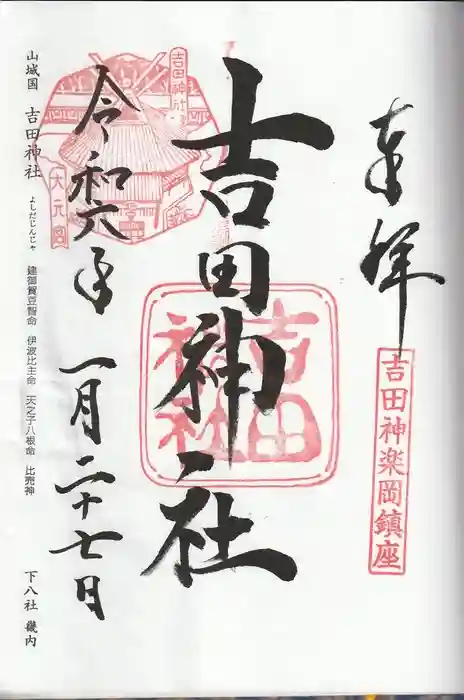 奉拝
吉田神楽岡鎮座
吉田神社
吉田神社
令和六年一月二十七日
吉田神社
大元宮
山城国 吉田神社 よしだじんじゃ 建御賀豆智命 伊波比主命 天之子八根命 比売神 下八社 畿内